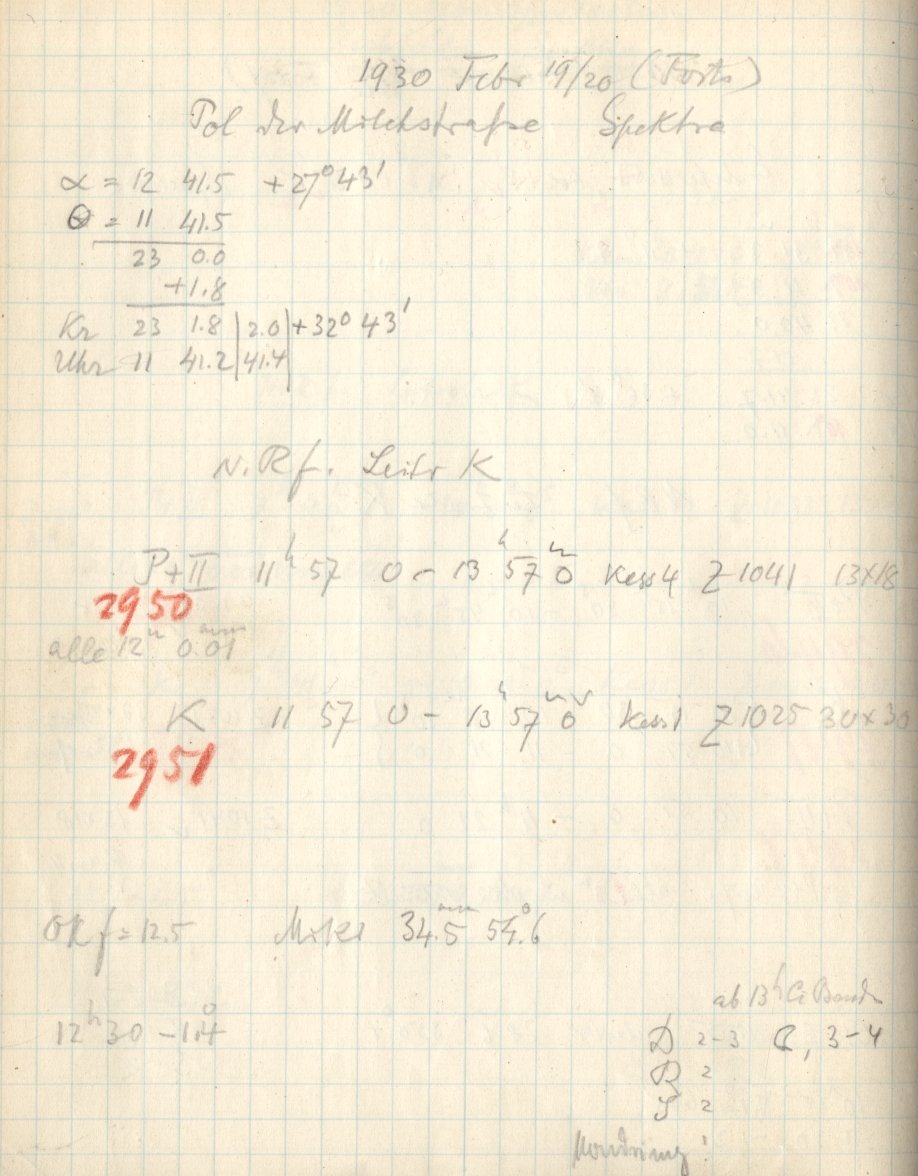 1930 Febr 19/20 (Forts)
Pol der Milchstraße Spektra
α = 12 41.5 +27° 43'
Θ = 11 41.5
23 0.0
+1.8
Kr 23 1.8 | 2.0 | +32° 43'
Uhr 11 41.2 | 41.4 |
N. Rf. Leitr K
P+II 11ʰ 57 0 – 13ʰ 57ᵐ 0 Kass 4 Z 1041 13×18
2950
alle 12ᵐ 0.01ᵐᵐ
K 11 57 0 – 13ʰ 57ᵐ 0ˢ Kass 1 Z 1025 30×30
2951
ORf = 12.5 Mikr 34.5ᵐᵐ 54.6°
12ʰ 30 –1.4°
ab 13ʰ Ci Band
D 2-3 C, 3-4
R 2
S 2
Mondring!